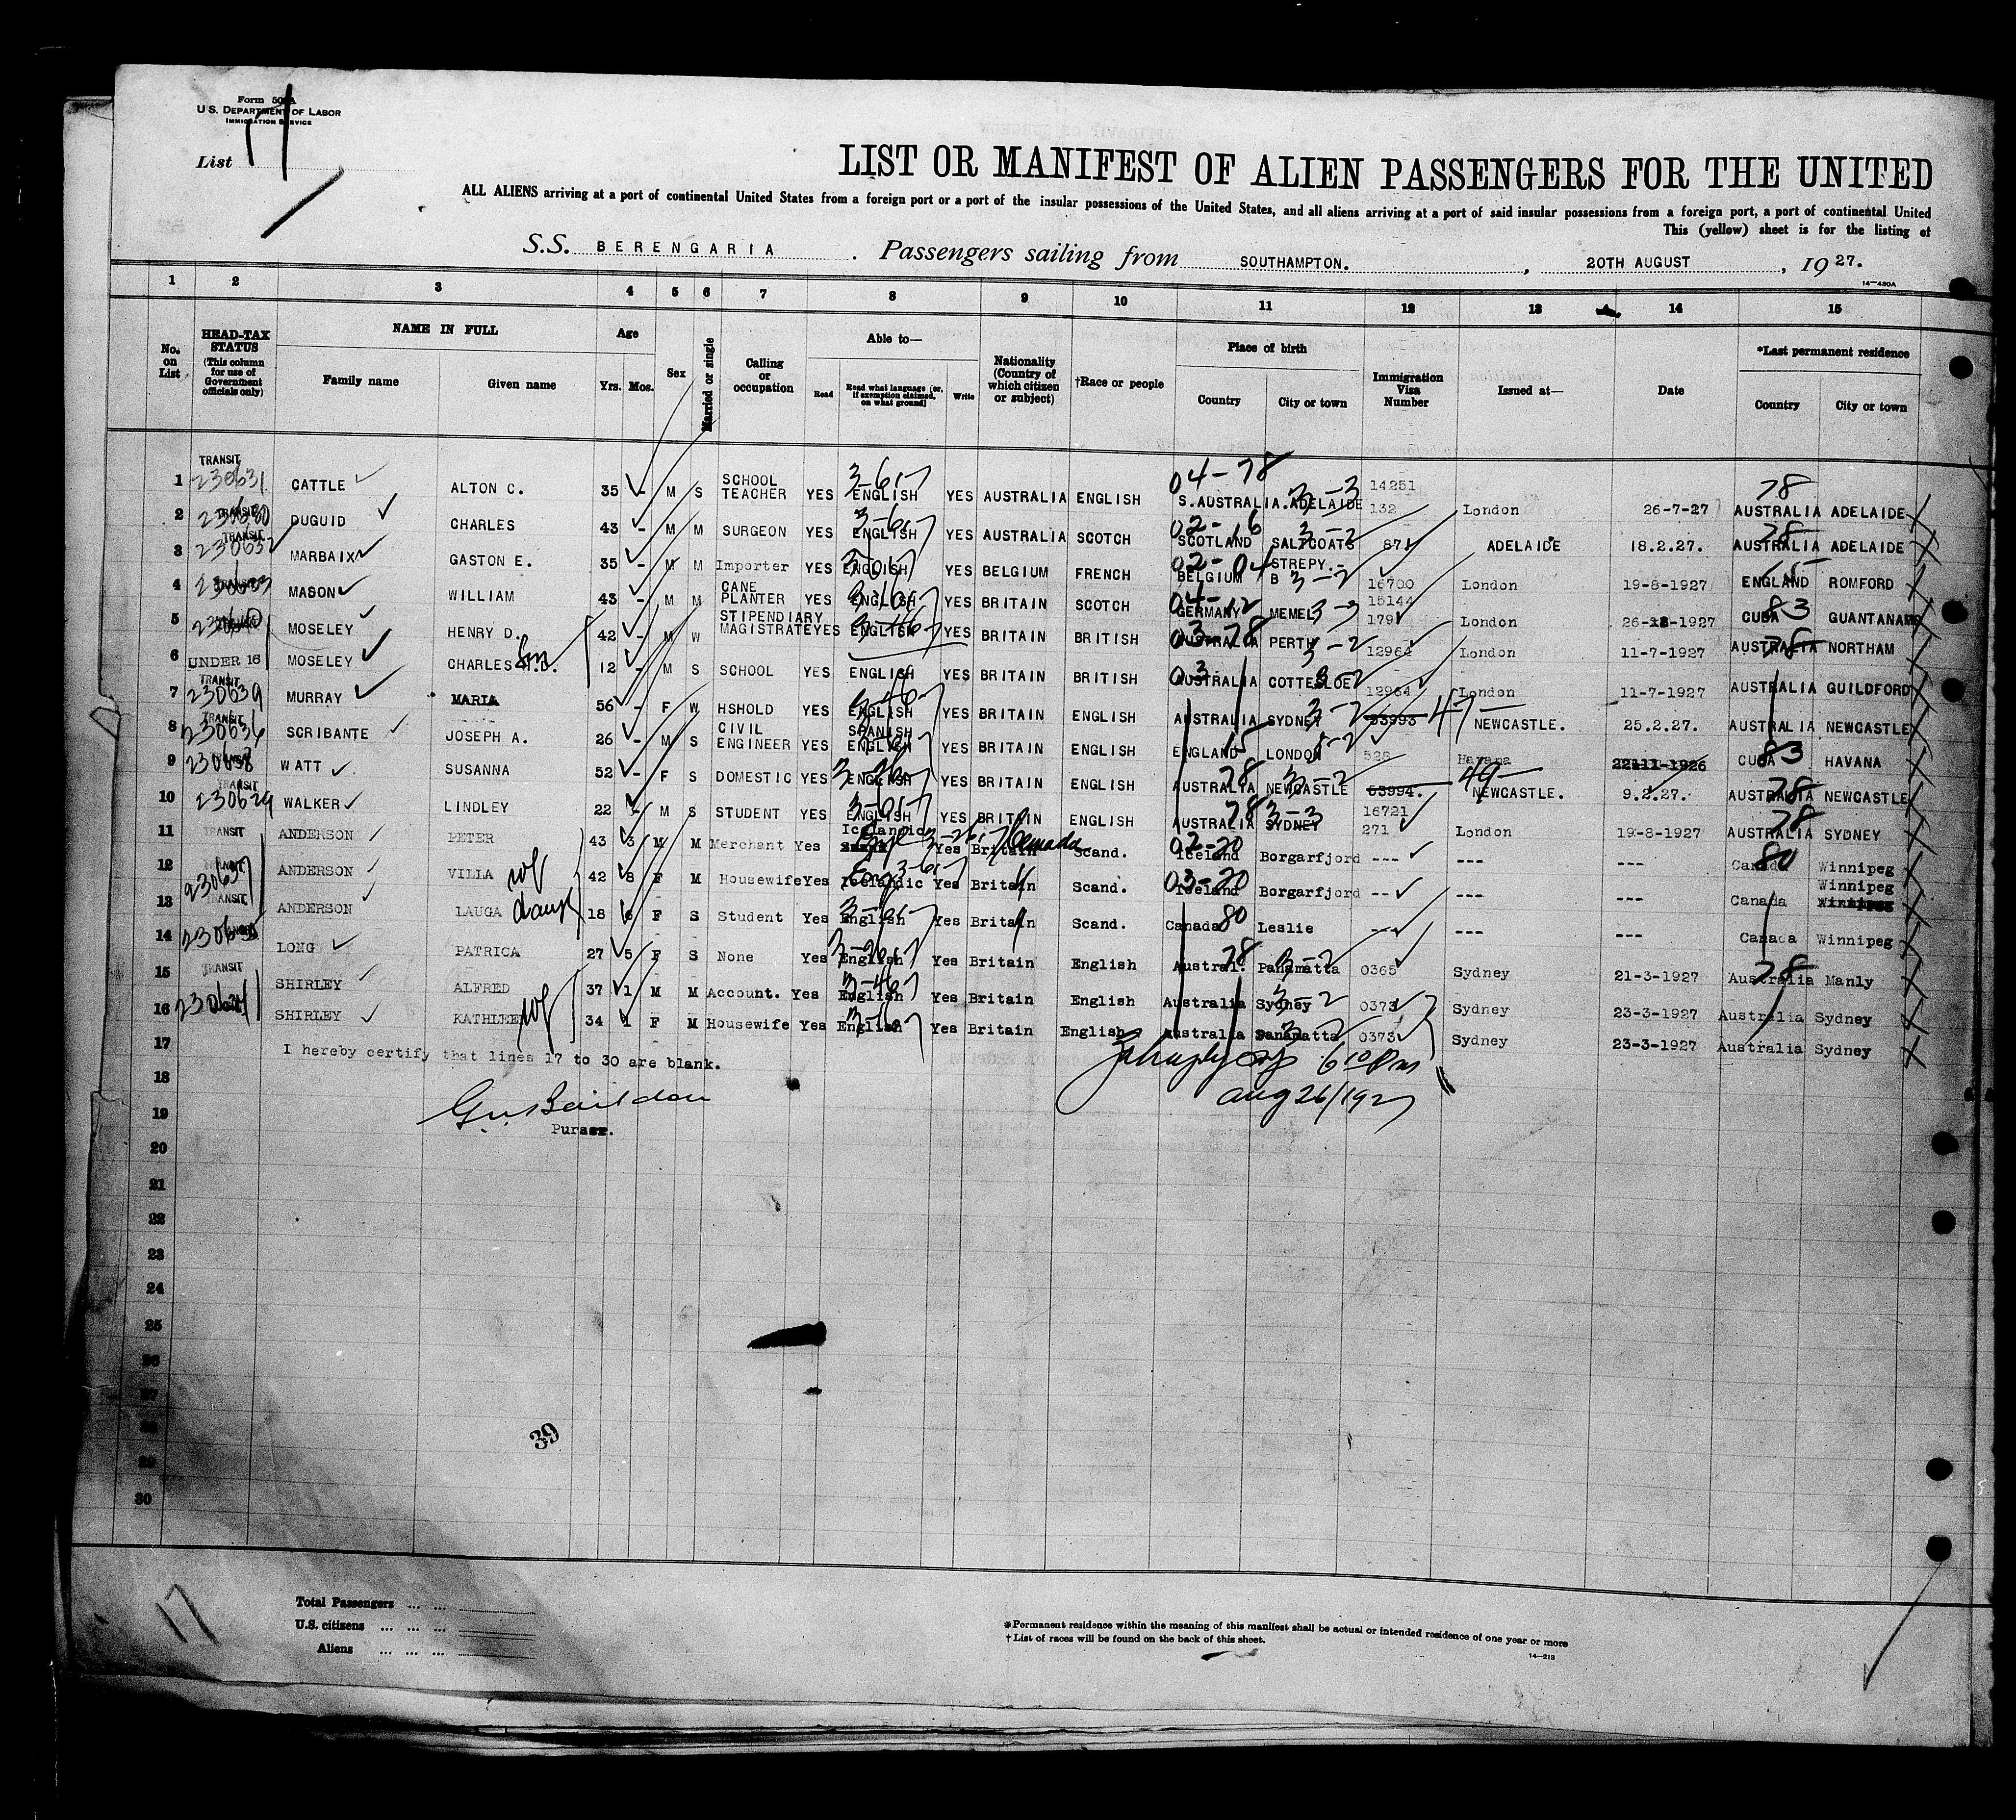 Form 500A
U.S. DEPARTMENT OF LABOR
IMMIGRATION SERVICE
List 17
LIST OR MANIFEST OF ALIEN PASSENGERS FOR THE UNITED
ALL ALIENS arriving at a port of continental United States from a foreign port or a port of the insular possessions of the United States, and all aliens arriving at a port of said insular possessions from a foreign port, a port of continental United
This (yellow) sheet is for the listing of
S.S. BERENGARIA. Passengers sailing from SOUTHAMPTON., 20TH AUGUST, 1927.
14—430A
1 2 3 4 5 6 7 8 9 10 11 12 13 14 15
No. on List
HEAD-TAX STATUS (This column for use of Government officials only)
NAME IN FULL
Family name Given name
Age
Yrs. Mos.
Sex
Married or single
Calling or occupation
Able to—
Read
Read what language [or, if exemption claimed, on what ground]
Write
Nationality (Country of which citizen or subject)
†Race or people
Place of birth
Country City or town
Immigration Visa Number
Issued at—
Date
*Last permanent residence
Country City or town
1 TRANSIT 230631 CATTLE ALTON C. 35 - M S SCHOOL TEACHER YES ENGLISH YES AUSTRALIA ENGLISH S.AUSTRALIA. ADELAIDE 14251 132 London 26-7-27 AUSTRALIA ADELAIDE
2 TRANSIT DUGUID CHARLES 43 - M M SURGEON YES ENGLISH YES AUSTRALIA SCOTCH SCOTLAND SALTCOATS 871 ADELAIDE 18.2.27. AUSTRALIA ADELAIDE
3 TRANSIT 230632 MARBAIX GASTON E. 35 - M M Importer YES ENGLISH YES BELGIUM FRENCH BELGIUM STREPY.- B 16700 London 19-8-1927 ENGLAND ROMFORD
4 MASON WILLIAM 43 - M M CANE PLANTER YES ENGLISH YES BRITAIN SCOTCH GERMANY MEMEL 15144 179 London 26-1927 CUBA GUANTANAMO
5 MOSELEY HENRY D. 42 - M W STIPENDIARY MAGISTRATE YES ENGLISH YES BRITAIN BRITISH AUSTRALIA PERTH 12964 London 11-7-1927 AUSTRALIA NORTHAM
6 UNDER 16 MOSELEY CHARLES 12 - M S SCHOOL YES ENGLISH YES BRITAIN BRITISH AUSTRALIA COTTESLOE 12964 London 11-7-1927 AUSTRALIA GUILDFORD
7 TRANSIT 230639 MURRAY MARIA 56 - F W HSHOLD YES ENGLISH YES BRITAIN ENGLISH AUSTRALIA SYDNEY 53993 47 NEWCASTLE. 25.2.27. AUSTRALIA NEWCASTLE
8 TRANSIT 230636 SCRIBANTE JOSEPH A. 26 - M S CIVIL ENGINEER YES SPANISH ENGLISH YES BRITAIN ENGLISH ENGLAND LONDON 528 Havana 22-11-1926 CUBA HAVANA
9 230638 WATT SUSANNA 52 - F S DOMESTIC YES ENGLISH YES BRITAIN ENGLISH AUSTRALIA NEWCASTLE 53994. 49 NEWCASTLE. 9.2.27. AUSTRALIA NEWCASTLE
10 TRANSIT 230629 WALKER LINDLEY 22 - M S STUDENT YES ENGLISH YES BRITAIN ENGLISH AUSTRALIA SYDNEY 16721 271 London 19-8-1927 AUSTRALIA SYDNEY
11 TRANSIT ANDERSON PETER 43 3 M M Merchant Yes Icelandic Yes Britain Canada Scand. Iceland Borgarfjord --- --- --- Canada Winnipeg
12 ANDERSON VILLA wf 42 8 F M Housewife Yes Icelandic Yes Britain Scand. Iceland Borgarfjord --- --- --- Canada Winnipeg
13 TRANSIT ANDERSON LAUGA daug 18 6 F S Student Yes English Yes Britain Scand. Canada Leslie --- --- --- Canada Winnipeg
14 LONG PATRICA 27 5 F S None Yes English Yes Britain English Austral. Panamatta 0365 Sydney 21-3-1927 Australia Manly
15 TRANSIT SHIRLEY ALFRED 37 1 M M Account. Yes English Yes Britain English Australia Sydney 0373 Sydney 23-3-1927 Australia Sydney
16 SHIRLEY KATHLEEN wf 34 1 F M Housewife Yes English Yes Britain English Australia Panamatta 0373 Sydney 23-3-1927 Australia Sydney
17 I hereby certify that lines 17 to 30 are blank.
6 10 Pm
Aug 26/1927
18
19
Purser.
20
21
22
23
24
25
26
27
28
29
30
39
17
Total Passengers ... ...
U.S. citizens ... ... ...
Aliens ... ... ...
*Permanent residence within the meaning of this manifest shall be actual or intended residence of one year or more
†List of races will be found on the back of this sheet.
14—213